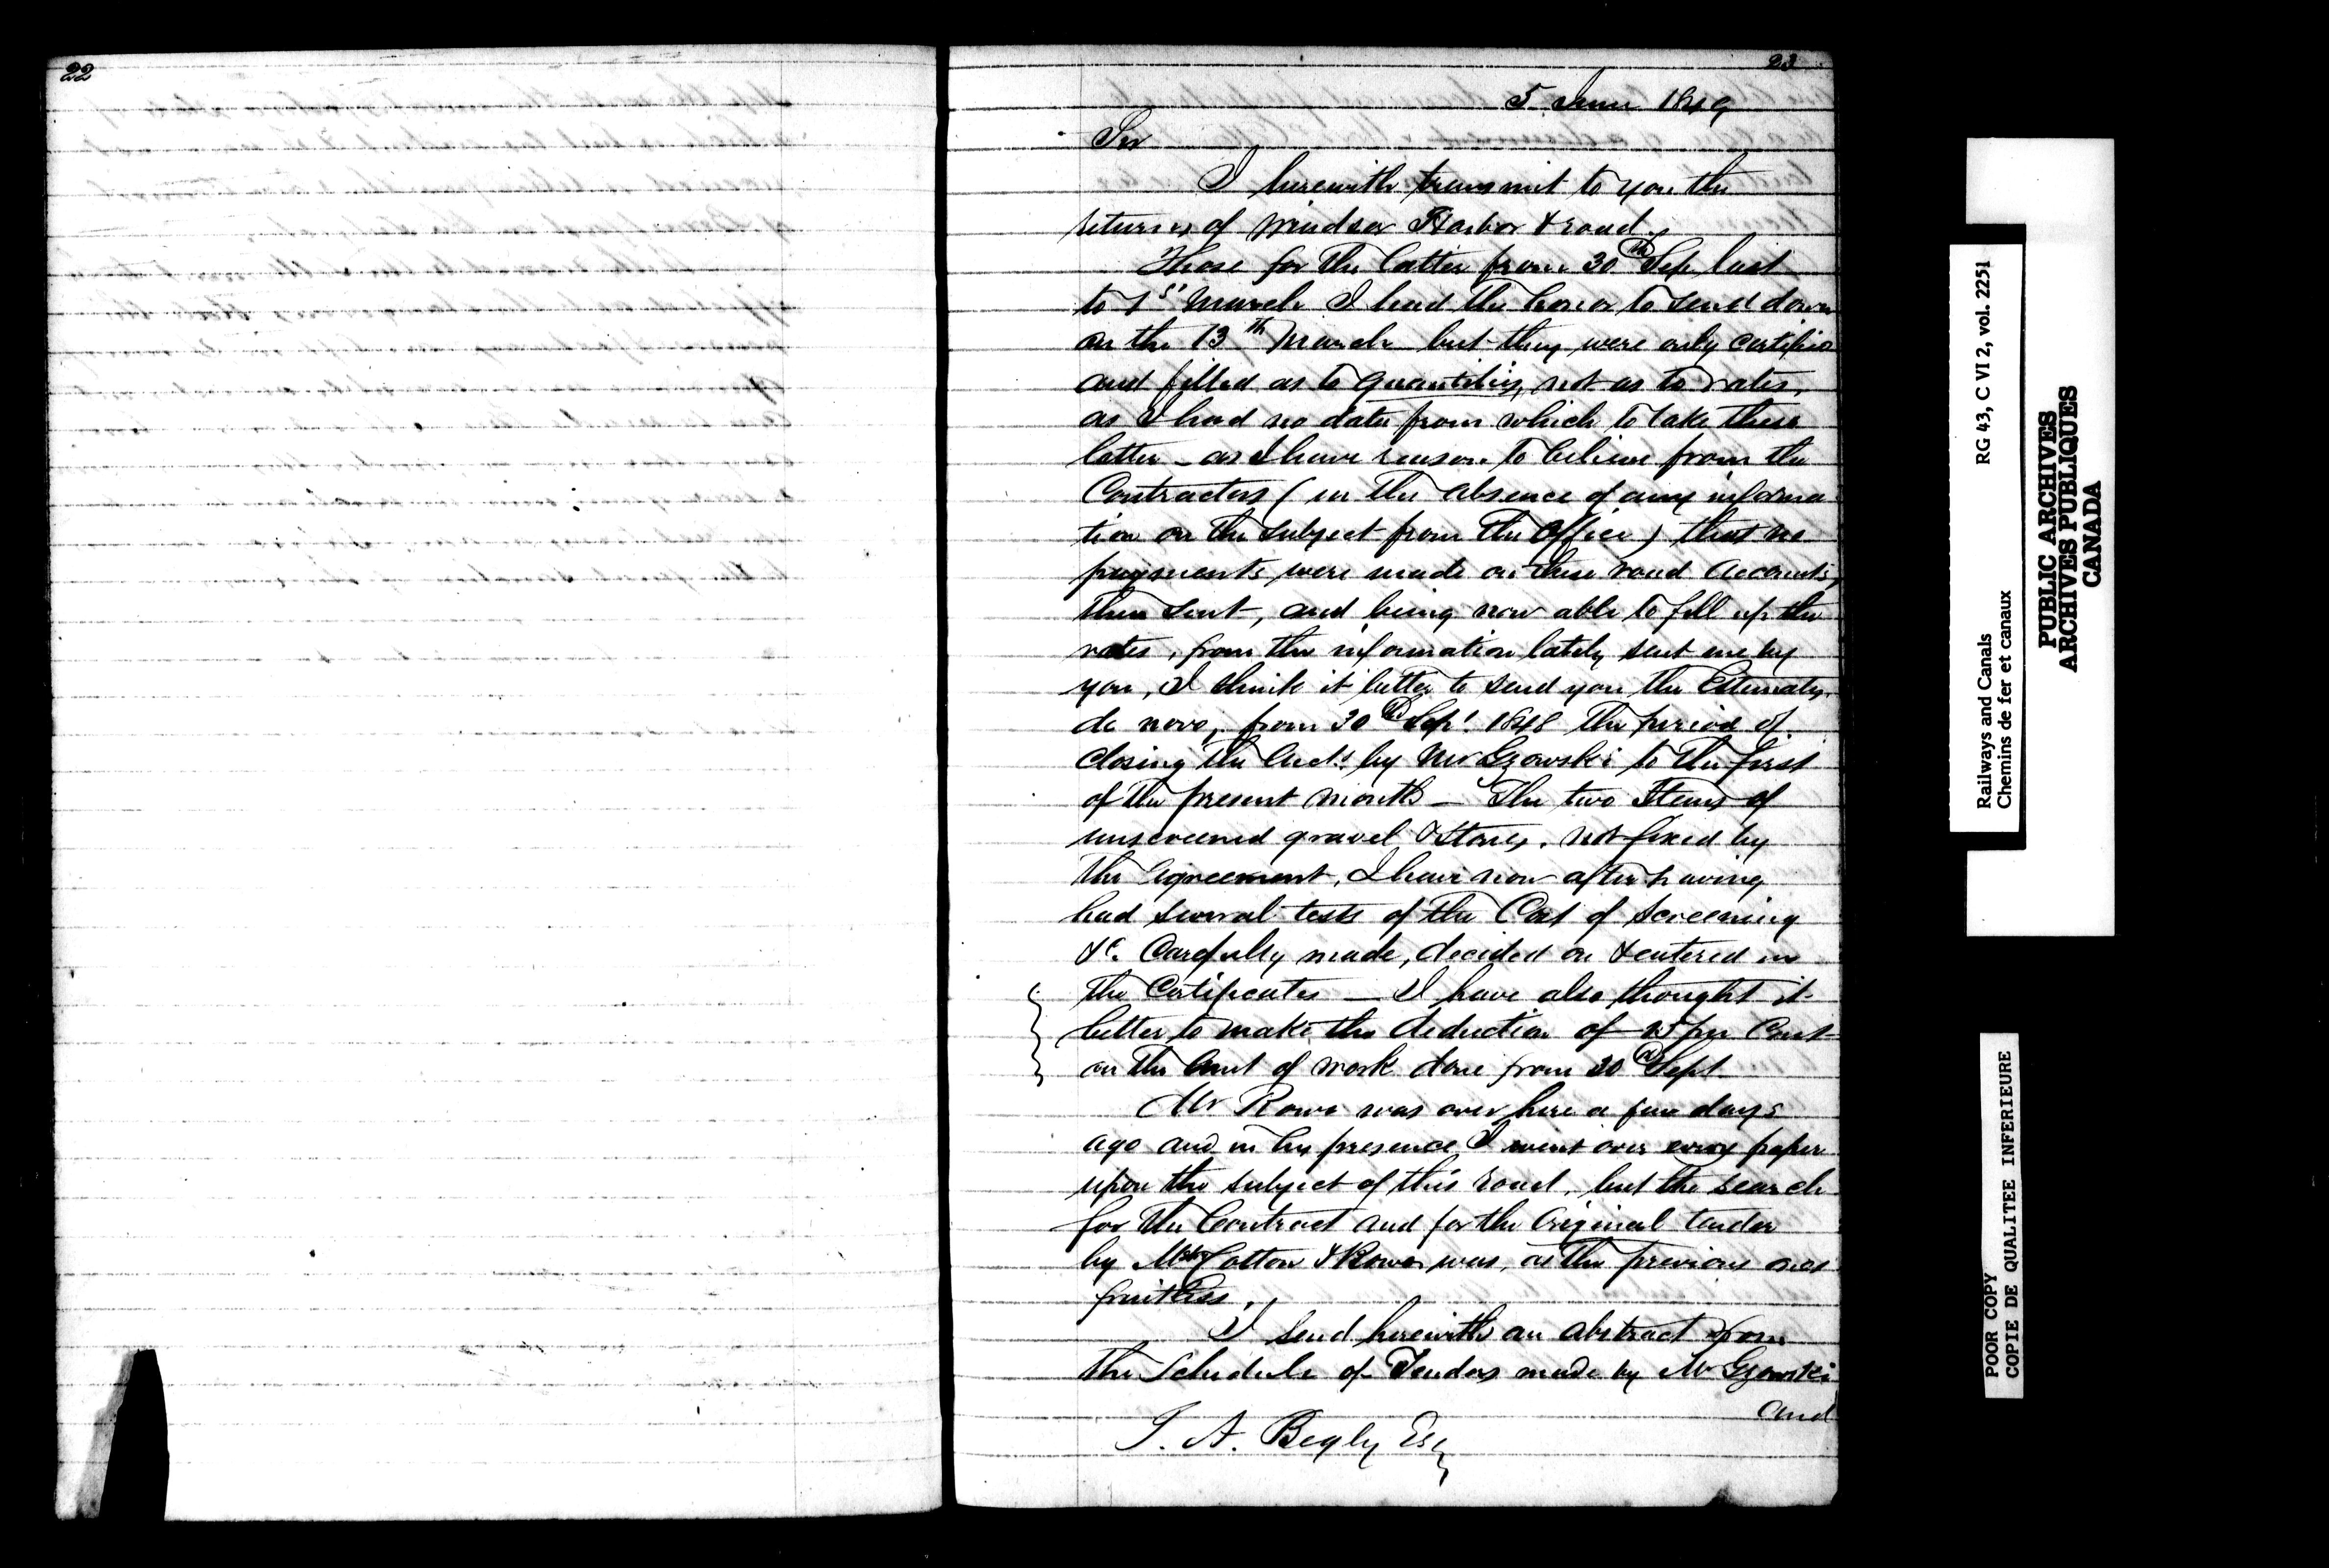 22
23
5 June 1849
Sir
I herewith transmit to you the
returns of Windsor Harbor & road.
Those for the latter from 30th Sep last
to 1st March I had the honor to send down
on the 13th March but they were only certified
and filled as to quantities, not as to rates,
as I had no data from which to take these
latter _ as I have reason to believe from the
Contractors (in the absence of any informa
tion on the subject from the Office) that no
payments were made on these road accounts,
then sent, and being now able to fill up the
rates, from the information lately sent me by
you, I think it better to send you the Estimates,
de novo, from 30th Sept. 1848 the period of
closing the Acct. by Mr Gzowski to the first
of the present month _ The two Items of
unscreened gravel & stones, not fixed by
the Agreement, I have now after having
had several tests of the Cost of screening
&c. Carefully made, decided on & entered in
the Certificates _ I have also thought it
better to make the deduction of per Cent
on the Amt of work done from 30th Sept
Mr Rowe was over here a few days
ago and in his presence I went over every paper
upon the subject of this road, but the search
for the Contract and for the Original tender
by Cotton & Rowe was, as the previous ones
fruitless.
I send herewith an abstract from
the Schedule of Tenders made by Mr Gzowski
and
T. A. Begly Esq
Railways and Canals RG 43, C VI 2, vol. 2251
Chemins de fer et canaux
PUBLIC ARCHIVES
ARCHIVES PUBLIQUES
CANADA
POOR COPY
COPIE DE QUALITEE INFERIEURE